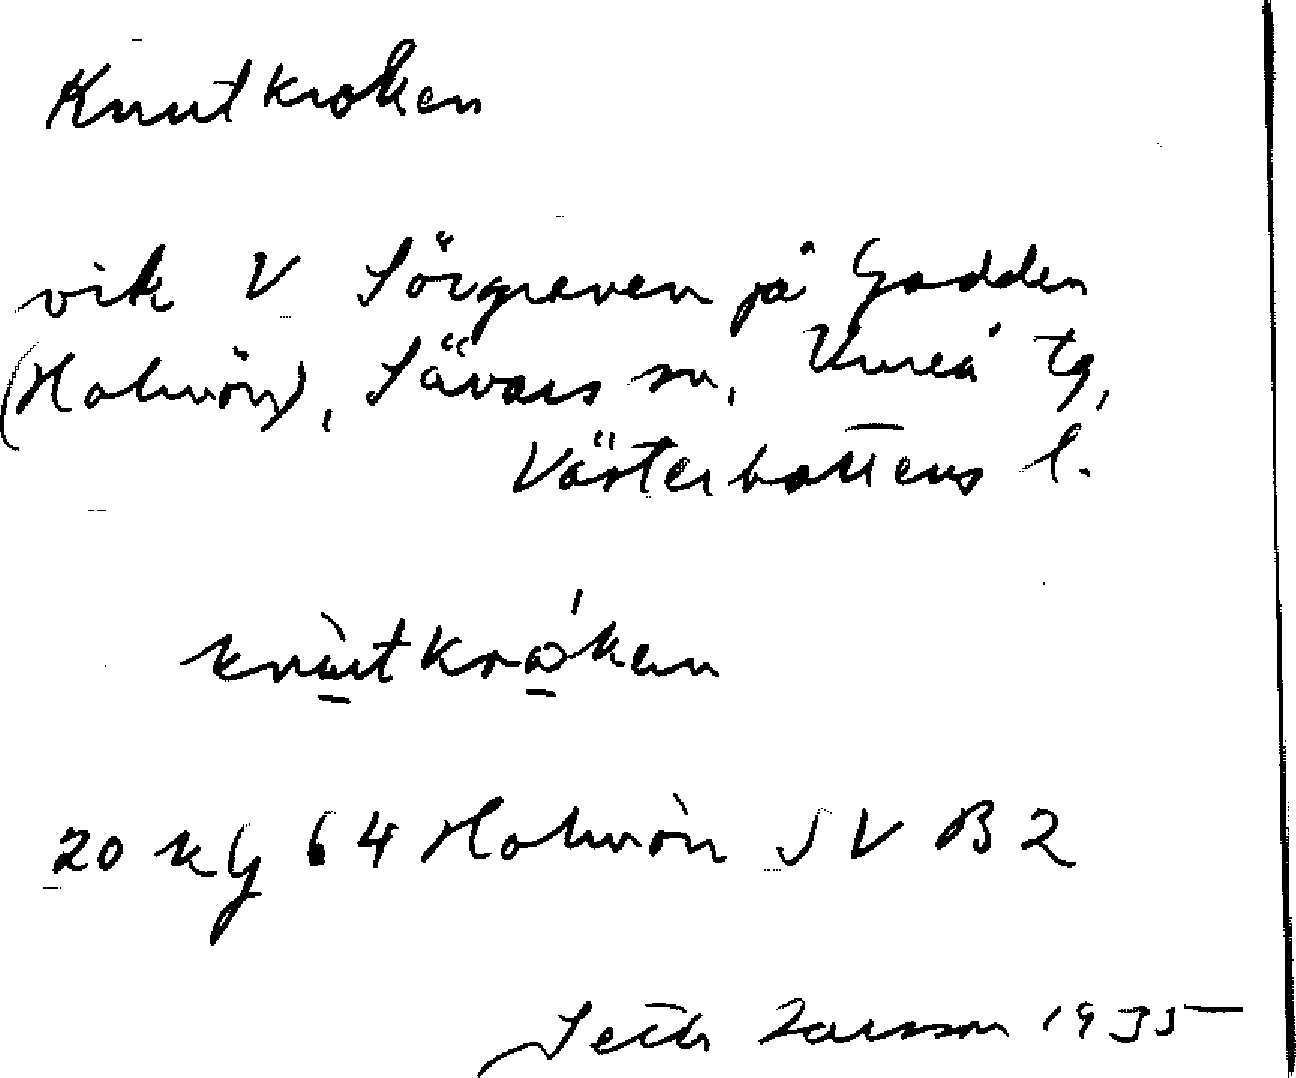 Knutkroken
vik V Sörgreven på Gadden
(Holmön), Sävars sn, Umeå tg,
Västerbottens l.
knùtkróken
20 kG 64 Holmön SV B2
Seth Larsson 1935